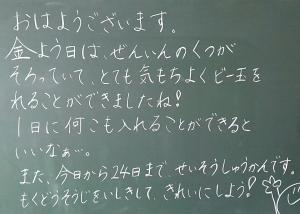 おはようございます。
金よう日は、ぜんいんのくつが
そろっていて、とても気もちよくビー玉を
れることができましたね!
1日に何こも入れることができると
いいなぁ…。
また、今日から24日まで、せいそうしゅうかんです。
もくどうそうじをいしきして、きれいにしよう!